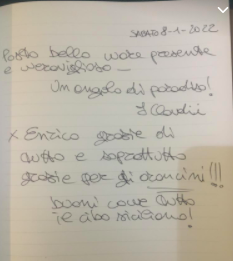 SABATO 8-1-2022
Posto bello mare presente
e meraviglioso
Un angolo di paradiso!
Claudii
x Enrico grazie di
tutto e soprattutto
grazie per gli arancini!!!
buoni come tutto
il cibo siciliano!